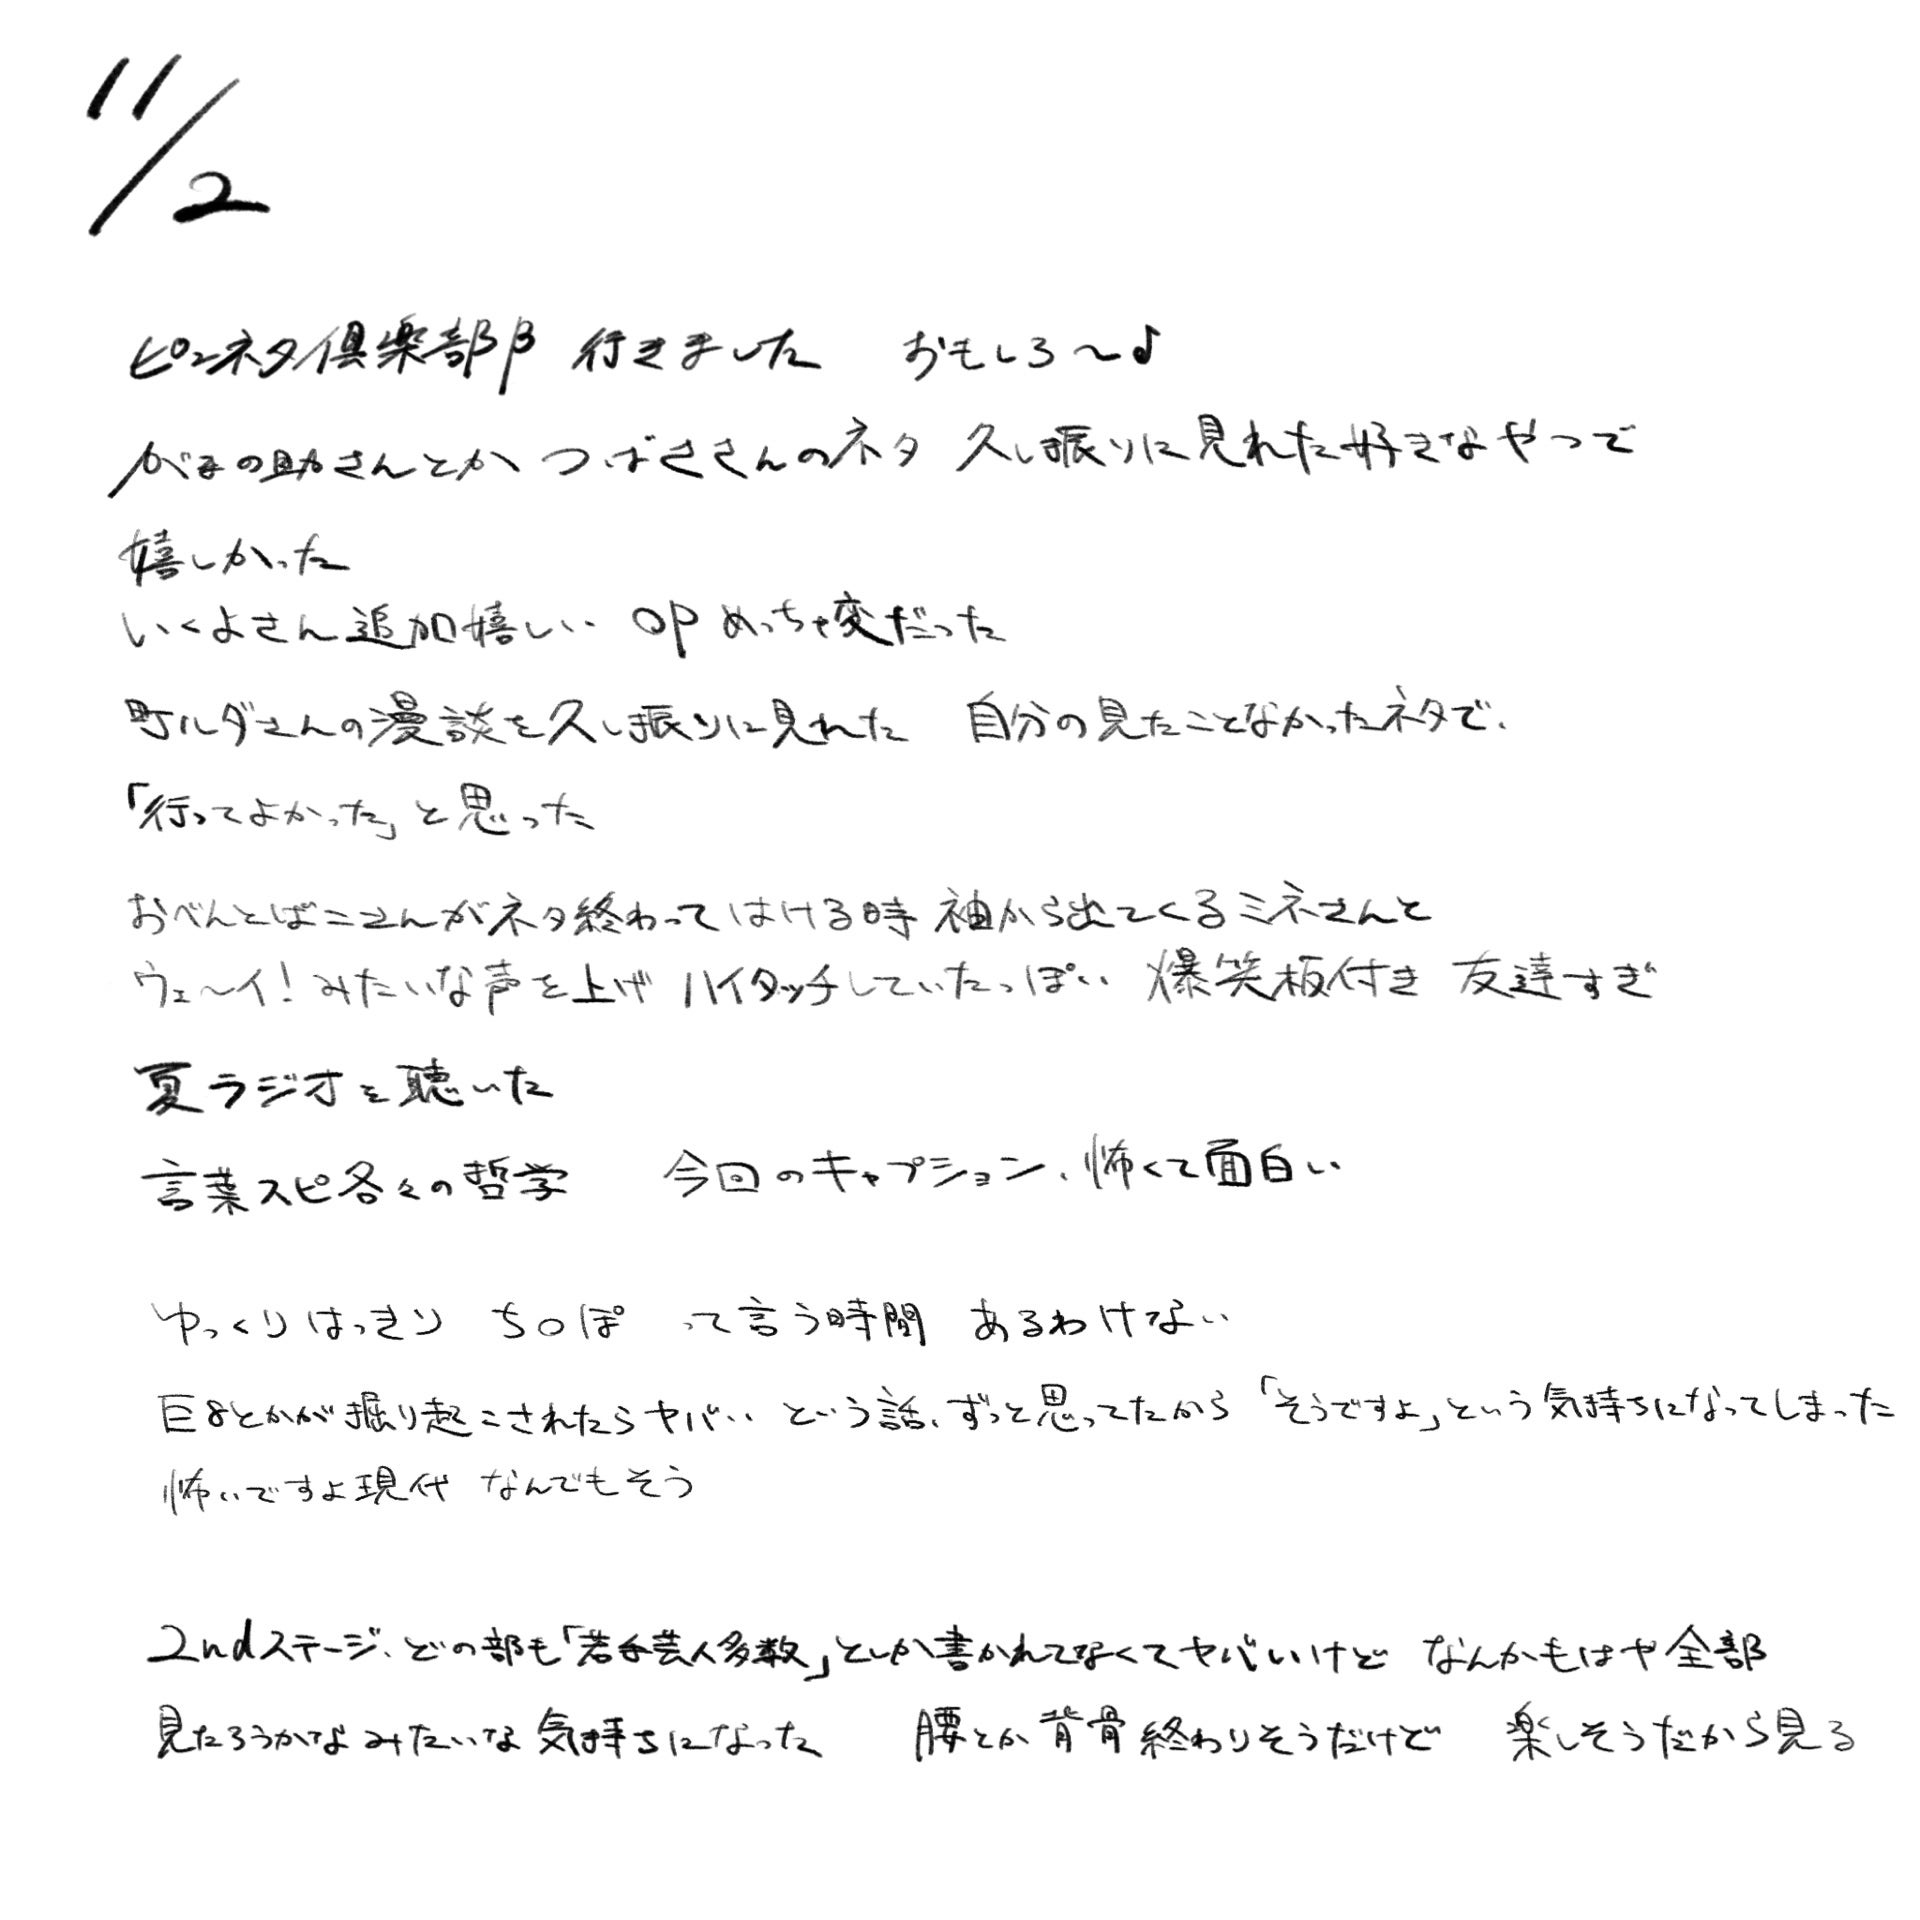 11/2
ピンネタ倶楽部β 行きました おもしろ〜♪
がまの助さんとか つばささんのネタ 久し振りに見れた好きなやつで
嬉しかった
いくよさん追加嬉しい OPめっちゃ変だった
町ルダさんの漫談を久し振りに見れた 自分の見たことなかったネタで、
「行ってよかった」と思った
おべんとばこさんがネタ終わってはける時 袖から出てくるミネさんと
ウェ〜イ!みたいな声を上げ ハイタッチしていたっぽい 爆笑板付き 友達すぎ
夏ラジオを聴いた
言葉スピ各々の哲学 今回のキャプション、怖くて面白い
ゆっくりはっきり ち○ぽ って言う時間 あるわけない
巨8とかが掘り起こされたらヤバい という話、ずっと思ってたから「そうですよ」という気持ちになってしまった
怖いですよ現代 なんでもそう
2ndステージ、どの部も「若手芸人多数」としか書かれてなくてヤバいけど なんかもはや全部
見たろうかなみたいな気持ちになった 腰とか背骨終わりそうだけど 楽しそうだから見る